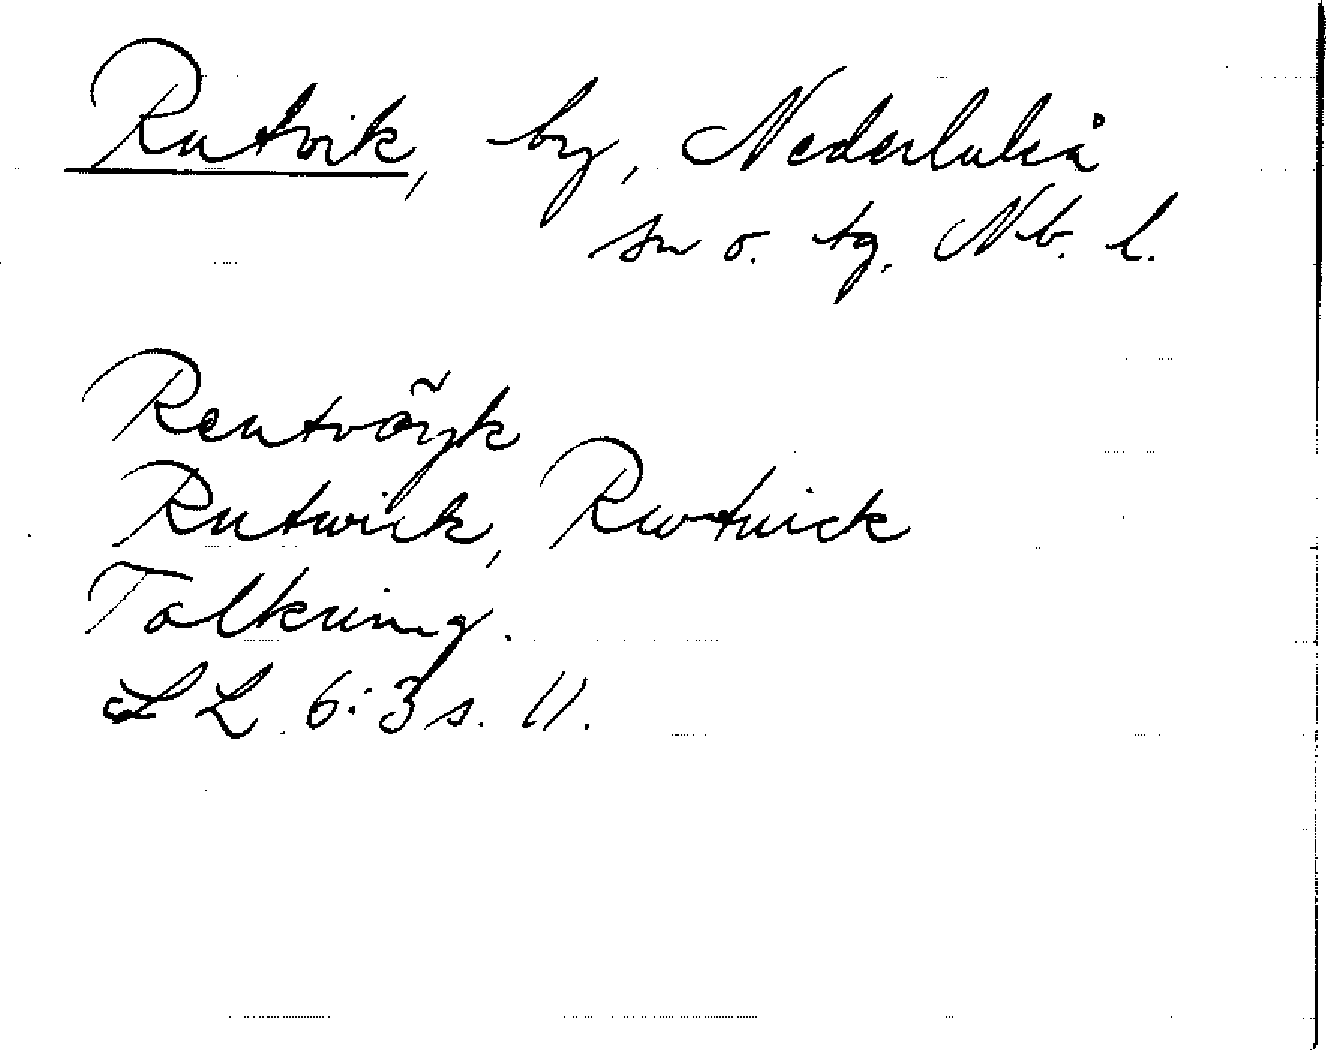 Rutvik, by, Nederluleå
sn o. tg. Nb. l.
Reutvöyk
Rutwick, Rwtuick
Tolkning.
LL 6:3 s. 11.